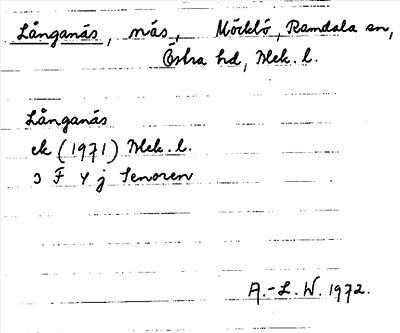 Långanäs, näs, Möcklö, Ramdala sn,
Östra hd, Blek. l.
Långanäs
ek (1971) Blek. l.
ↄ F 4 j Senoren
A.-L. W. 1972.